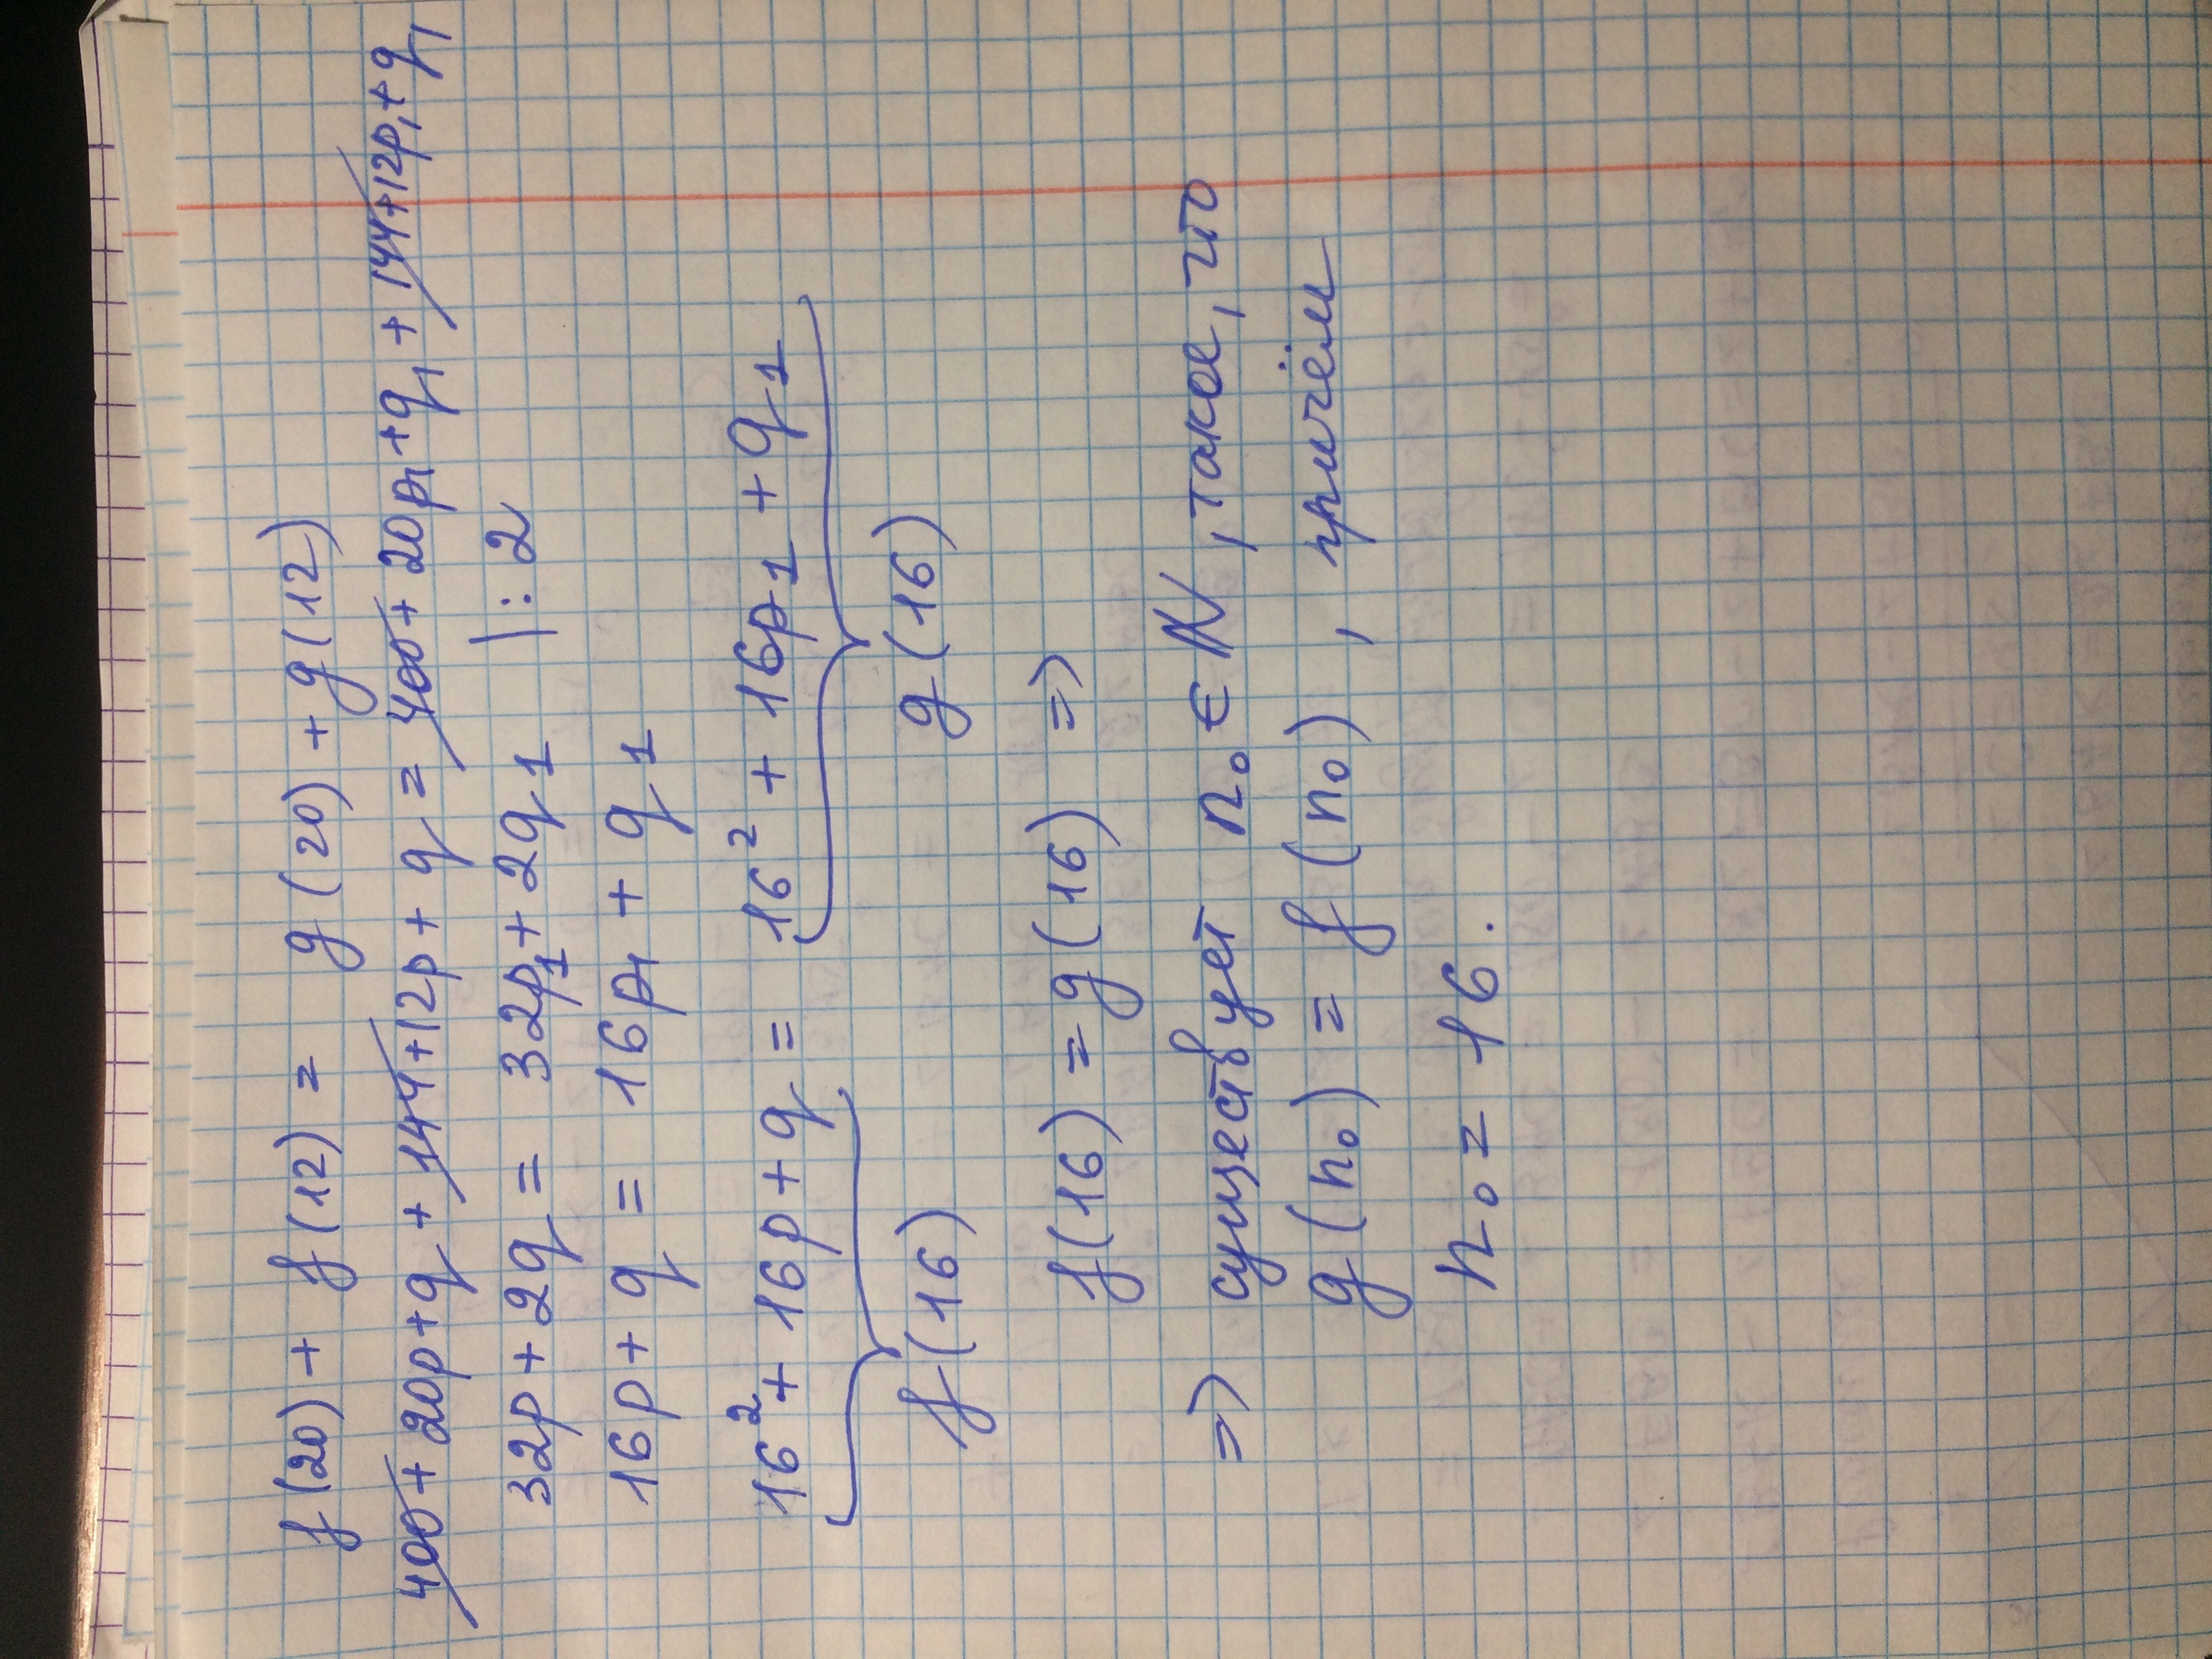 f(20) + f(12) = g(20) + g(12)
400 + 20p + q + 144 + 12p + q = 400 + 20p₁ + q₁ + 144 + 12p₁ + q₁
32p + 2q = 32p₁ + 2q₁ |:2
16p + q = 16p₁ + q₁
16² + 16p + q = 16² + 16p₁ + q₁
f(16) g(16)
f(16) = g(16) =>
=> существует n₀ ∈ ℕ, такое, что
g(n₀) = f(n₀), причём
n₀ = 16.